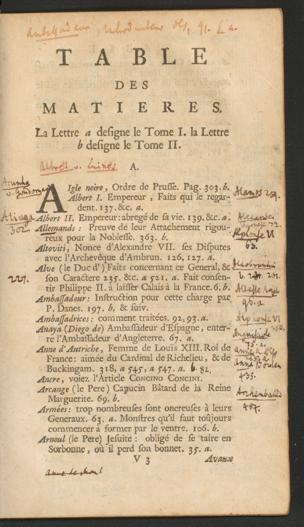 TABLE
DES
MATIERES.
La Lettre a designe le Tome I. la Lettre
b designe le Tome II.
A.
AIgle noire, Ordre de Prusse. Pag. 303. b.
Albert I. Empereur, Faits qui le regar-
dent. 137. &c. a.
Albert II. Empereur: abregé de sa vie. 139. &c. a.
Allemands: Preuve de leur Attachement rigou-
reux pour la Noblesse. 363. b.
Altoviti, Nonce d'Alexandre VII. ses Disputes
avec l'Archevêque d'Ambrun. 126, 127. a.
Alve (le Duc d') Faits concernant ce General, &
son Caractere 235. &c. a 521. a. Fait consen-
tir Philippe II. à laisser Calais à la France. 6. b.
Ambassadeur: Instruction pour cette charge par
P. Danes. 197. b, & suiv.
Ambassadrices: comment traitées. 92, 93. a.
Anaya (Diego de) Ambassadeur d'Espagne, enter-
re l'Ambassadeur d'Angleterre. 67. a.
Anne d'Autriche, Femme de Louïs XIII. Roi de
France: aimée du Cardinal de Richelieu, & de
Buckingam. 318, a 545, a 547. a. b. 82.
Ancre, voiez l'Article CONCINO CONCINI.
Arcange (le Pere) Capucin Bâtard de la Reine
Marguerite. 69. b.
Armées: trop nombreuses sont onereuses à leurs
Generaux. 63. a. Monstres qu'il faut toûjours
commencer à former par le ventre. 106. b.
Arnoul (le Pere) Jesuite: obligé de se taire en
Sorbonne, où il perd son bonnet. 35. a.
V 3 Avaux